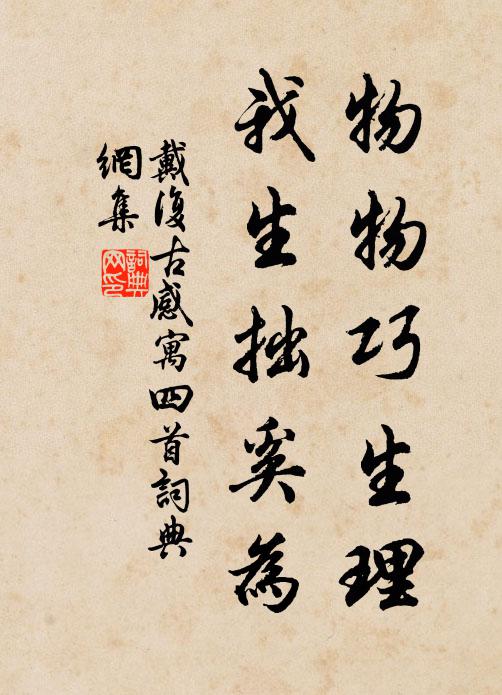 物物巧生理
我生拙奚為
戴復古感寓四首詞典
網集
詞典
网印